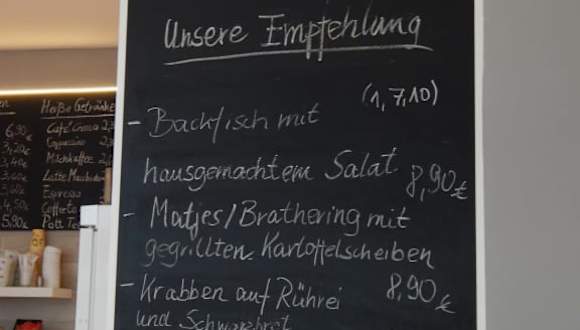 Unsere Empfehlung
(1,7,10)
- Backfisch mit
hausgemachtem Salat 8,90€
- Matjes/Brathering mit
gegrillten Kartoffelscheiben
8,90€
- Krabben auf Rührei
und Schwarzbrot
Heiße Getränke
6,90€
Café Crema
3,20€
Cappuccino
3,40€
Milchkaffee
3,40€
Latte Macchiato
3,50€
Espresso
4,50€
5,90€
Pott Te